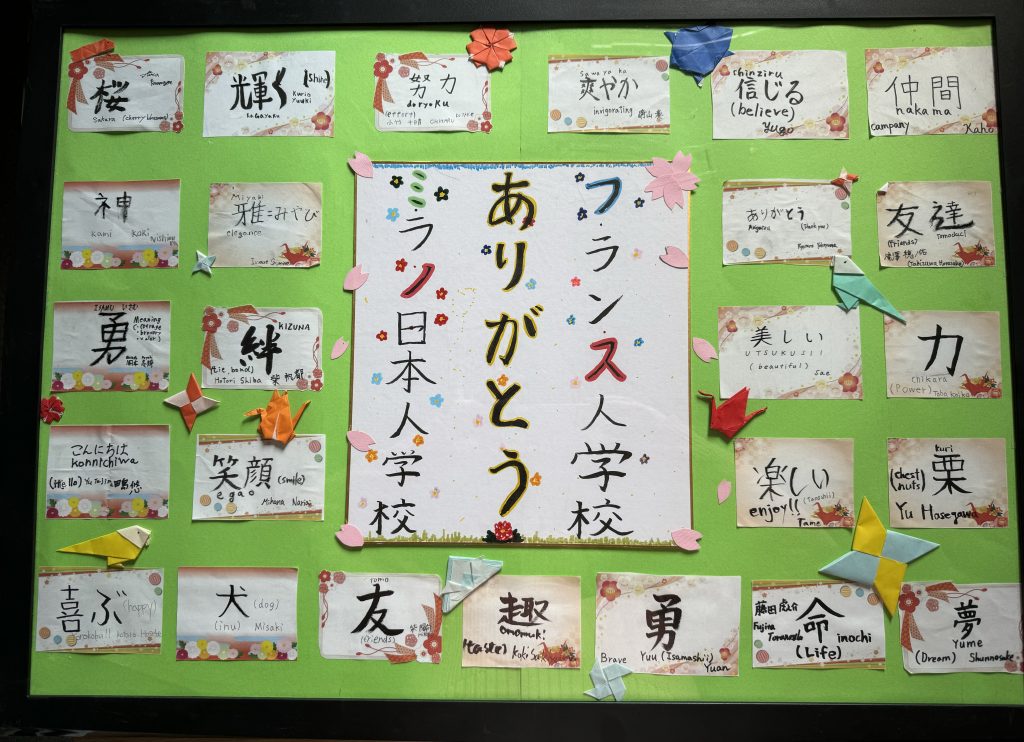 フランス人学校
ありがとう
ミラノ日本人学校
桜
Sakura (cherry blossom)
輝く
(Shine)
Kario
Yuuki
kagayaku
努力
doryoku
(effort)
Sawayaka
爽やか
invigorating
chinziru
信じる
(believe)
Yugo
仲間
nakama
company
Kaho
神
kami Koki
Miyabi
雅=みやび
elegance
ありがとう
(Thank you)
友達
(friends) Tomodachi
(Takizawa
ISAMU
勇
Meaning
KIZUNA
絆
(tie, bond)
Motori Shiba
美しい
UTSUKUSII
(beautiful)
Sae
力
chikara
(Power)
こんにちは
konntchiwa
(Hello) Yu Tajin
笑顔
(smile)
egao
Mihana Nariai
楽しい
(Tanoshii)
enjoy!!
Tame
kuri
栗
(chest
nuts)
Yu Hasegawa
喜ぶ
(happy)
犬
(dog)
(inu) Misaki
Tomo
友
(friends)
趣
omomuki
勇
Brave Yuu (Isamashii)
Yuan
藤田
Fujita
命
inochi
(Life)
夢
Yume
(Dream) Shunnosuke